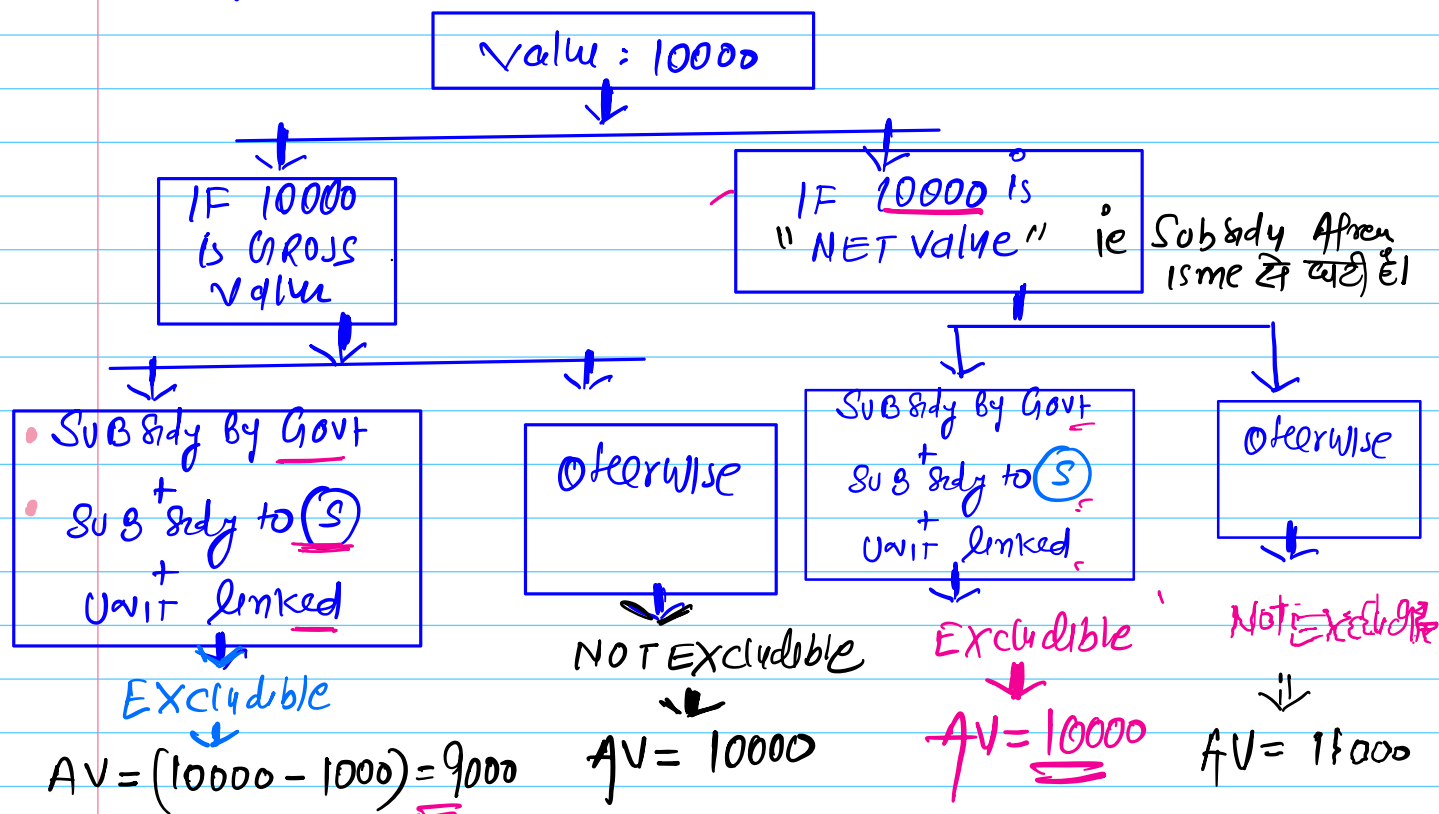 Value : 10000
IF 10000
is GROSS
Value
IF 10000 is
"NET Value"
ie Subsidy Afren
isme से घटी है।
SUBSidy By Govt
+
SUBSidy to S
+
Unit linked
Otherwise
SUBSidy By Govt
+
SUBSidy to S
+
Unit linked
Otherwise
EXcludible
AV = (10000 - 1000) = 9000
NOT EXcludible
AV = 10000
EXcludible
AV = 10000
Not
AV = 11000